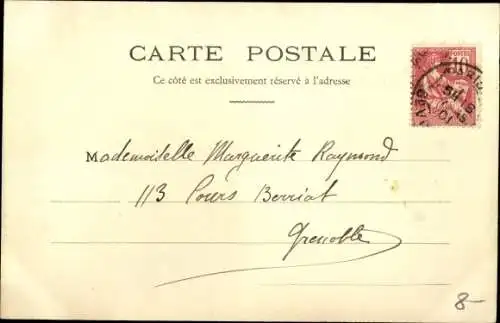 CARTE POSTALE
Ce côté est exclusivement réservé à l'adresse
Mademoiselle Marguerite Raymond
113 Cours Berriat
Grenoble
8-